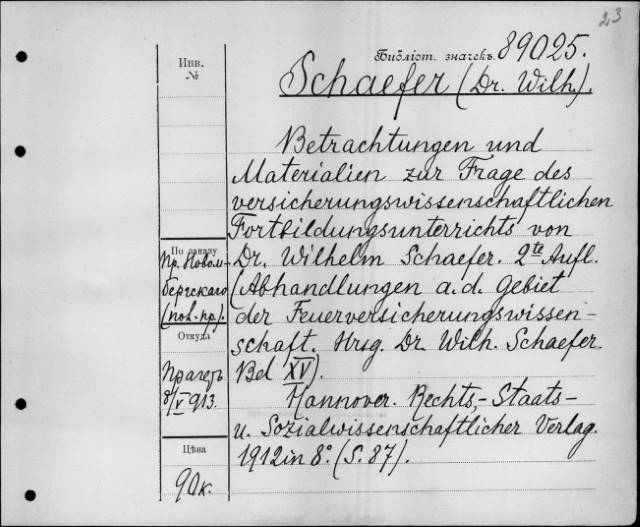 23
Инв.
№
Библіот. значекъ 89025.
Schaefer (Dr. Wilh.).
Betrachtungen und
Materialien zur Frage des
versicherungswissenschaftlichen
Fortbildungsunterrichts von
Dr. Wilhelm Schaefer. 2te Aufl.
(Abhandlungen a. d. Gebiet
der Feuerversicherungswissen-
schaft. Hrsg. Dr. Wilh. Schaefer.
Bd XV).
Hannover. Rechts,- Staats-
u. Sozialwissenschaftlicher Verlag.
1912 in 8°. (S. 87).
По заказу
Пр. Новом-
бергскаго
(пов. пр.).
Откуда
Прагеръ
8/V 913.
Цѣна
90 к.